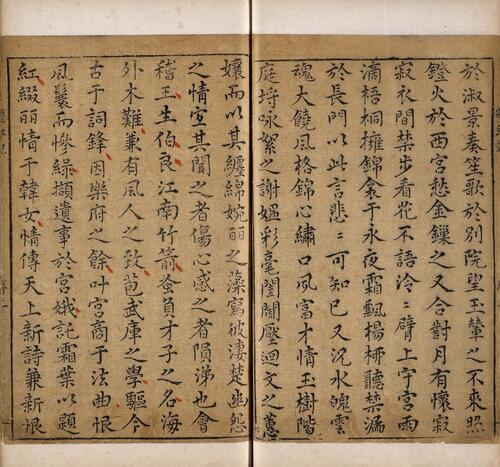 於淑景奏笙歌於別院望玉輦之不來照
鐙火於西宮愁金鏁之又合對月有懷寂
寂衣間禁步看花不語泠〻臂上守宮雨
滴梧桐擁錦衾于永夜霜飄楊柳聽禁漏
於長門以此言悲〻可知已又況水魄雲
魂大饒風格錦心繡口夙富才情玉樹階
庭埒咏絮之謝媼彩毫閨閣壓迴文之蕙
孃而以其纏綿婉麗之藻寫彼淒楚幽怨
之情宜其聞之者傷心感之者隕涕也會
稽王生伯良江南竹箭蚤負才子之名海
外木難兼有風人之致苞武庫之學驅今
古于詞鋒因樂府之餘叶宮商于法曲恨
風鬟而慘綠擷遺事於宮娥託霜葉以題
紅綴麗情于韓女情傳天上新詩兼新恨